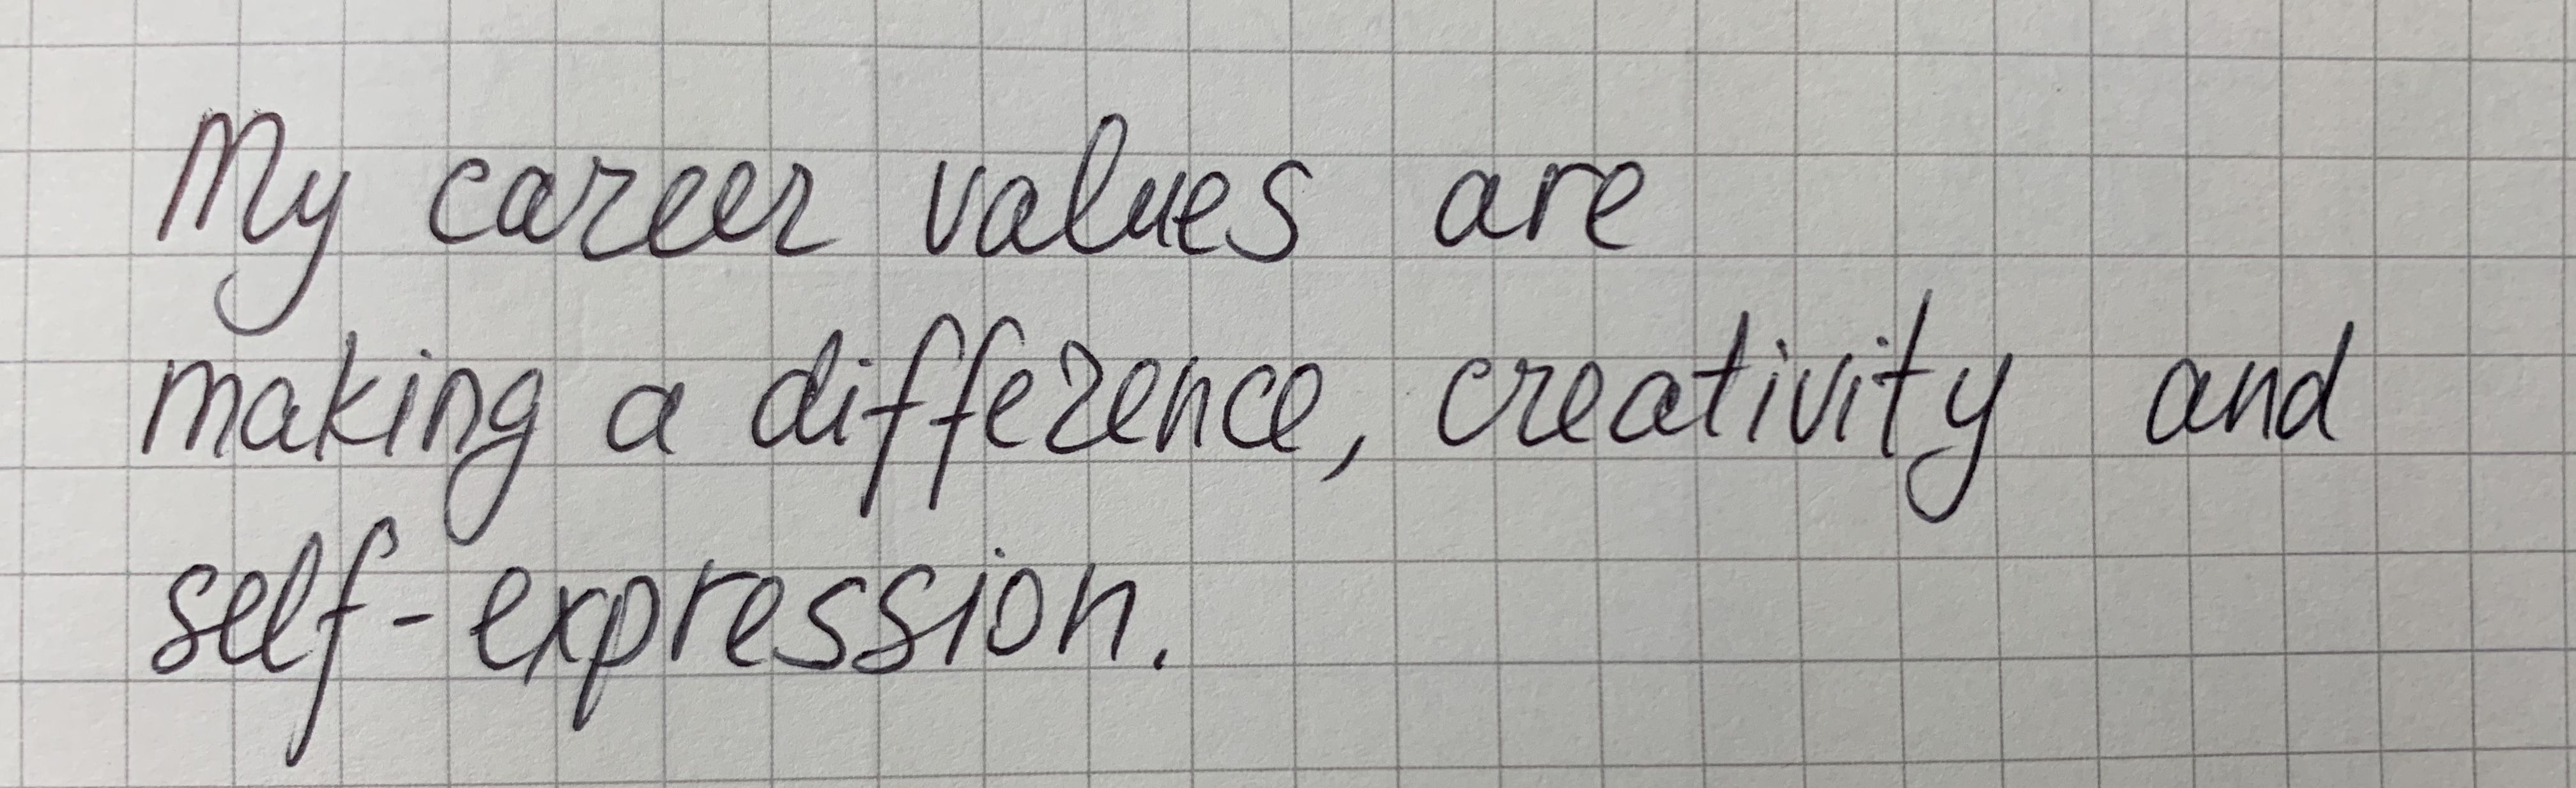 My career values are
making a difference, creativity and
self-expression.